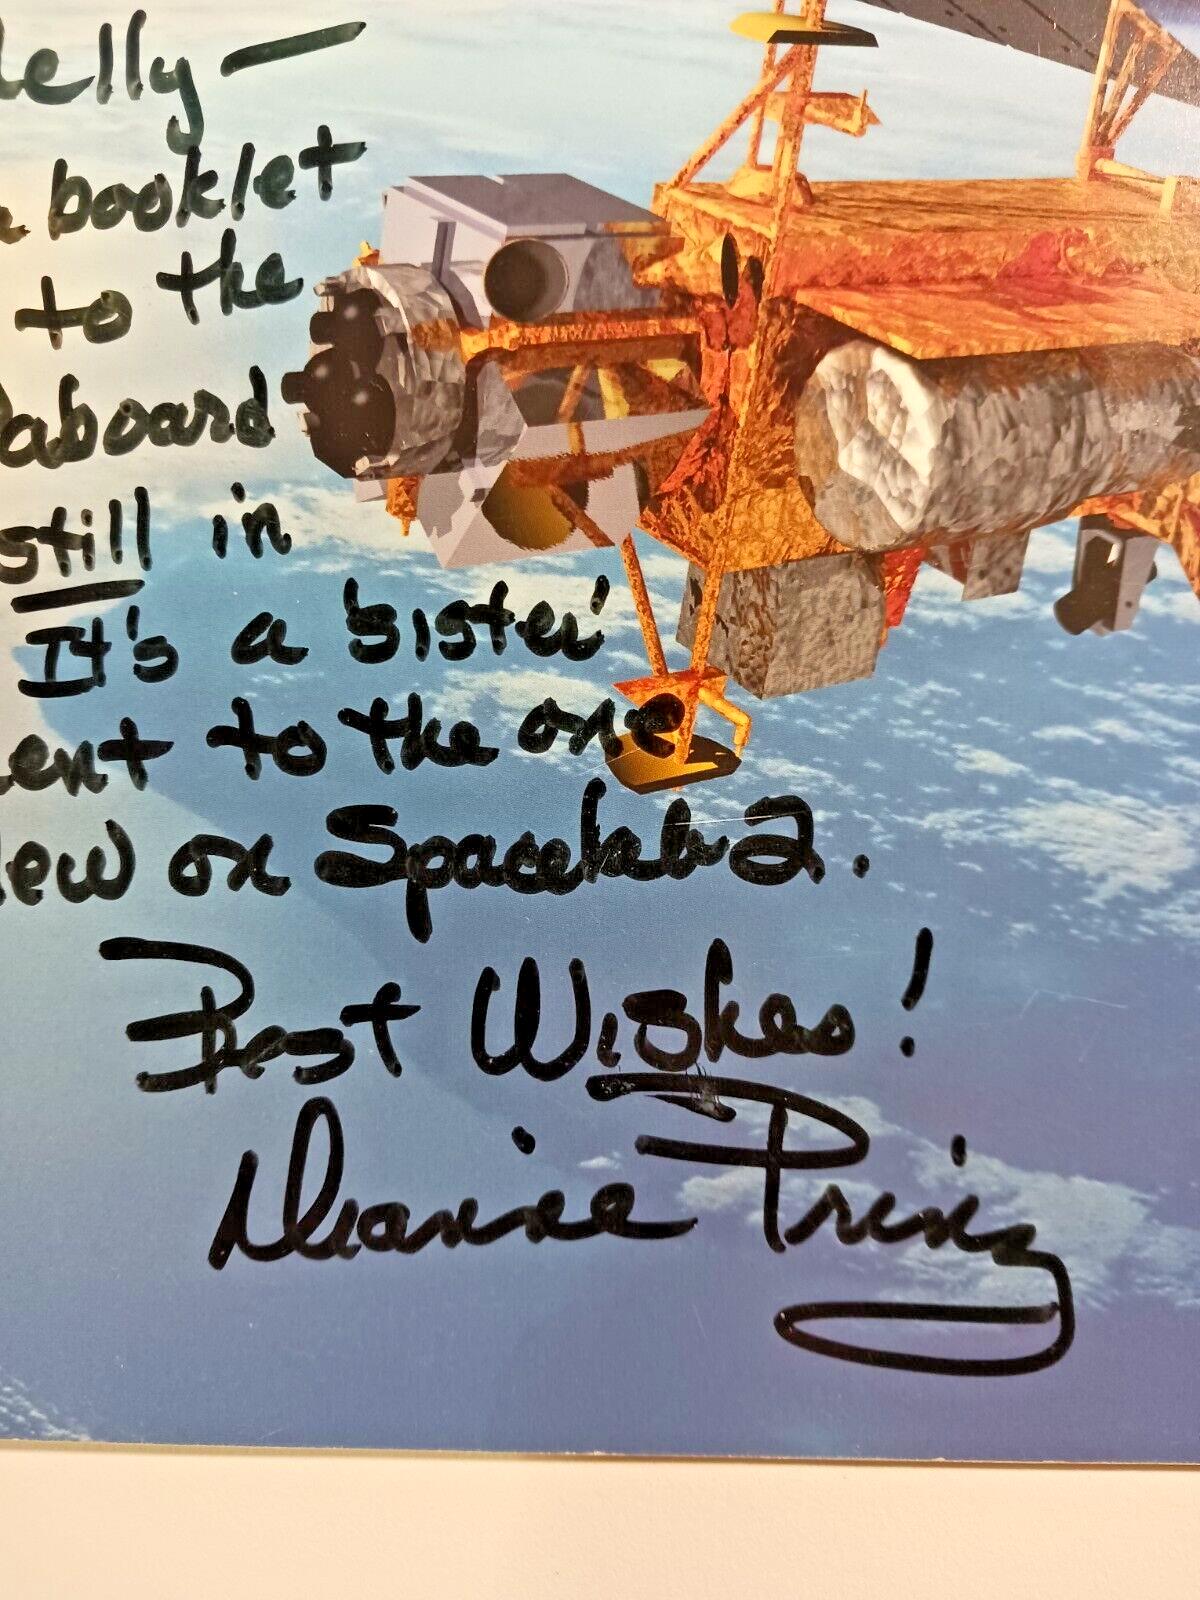 elly —
booklet
to the
aboard
still in
It's a 'sister'
ent to the one
ew on Spacelab 2.
Best Wishes!
Dianne Prinz